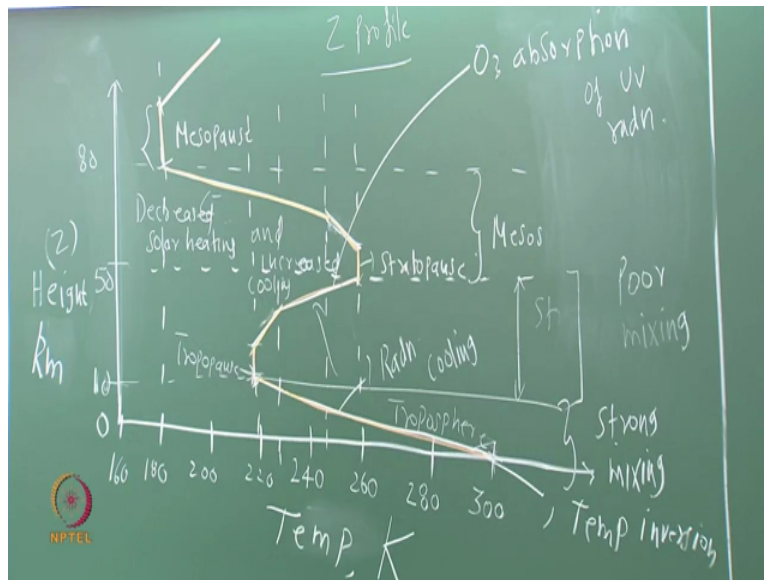 Z Profile
O₃ absorption
of UV
radn.
Mesopause
80
Decreased
solar heating and
increased
cooling
Stratopause
Mesos
(Z)
Height
km
50
Poor
mixing
St
Tropopause
Radn. cooling
10
Troposphere
0
Strong
mixing
160 180 200 220 240 260 280 300
Temp, K
Temp inversion
NPTEL